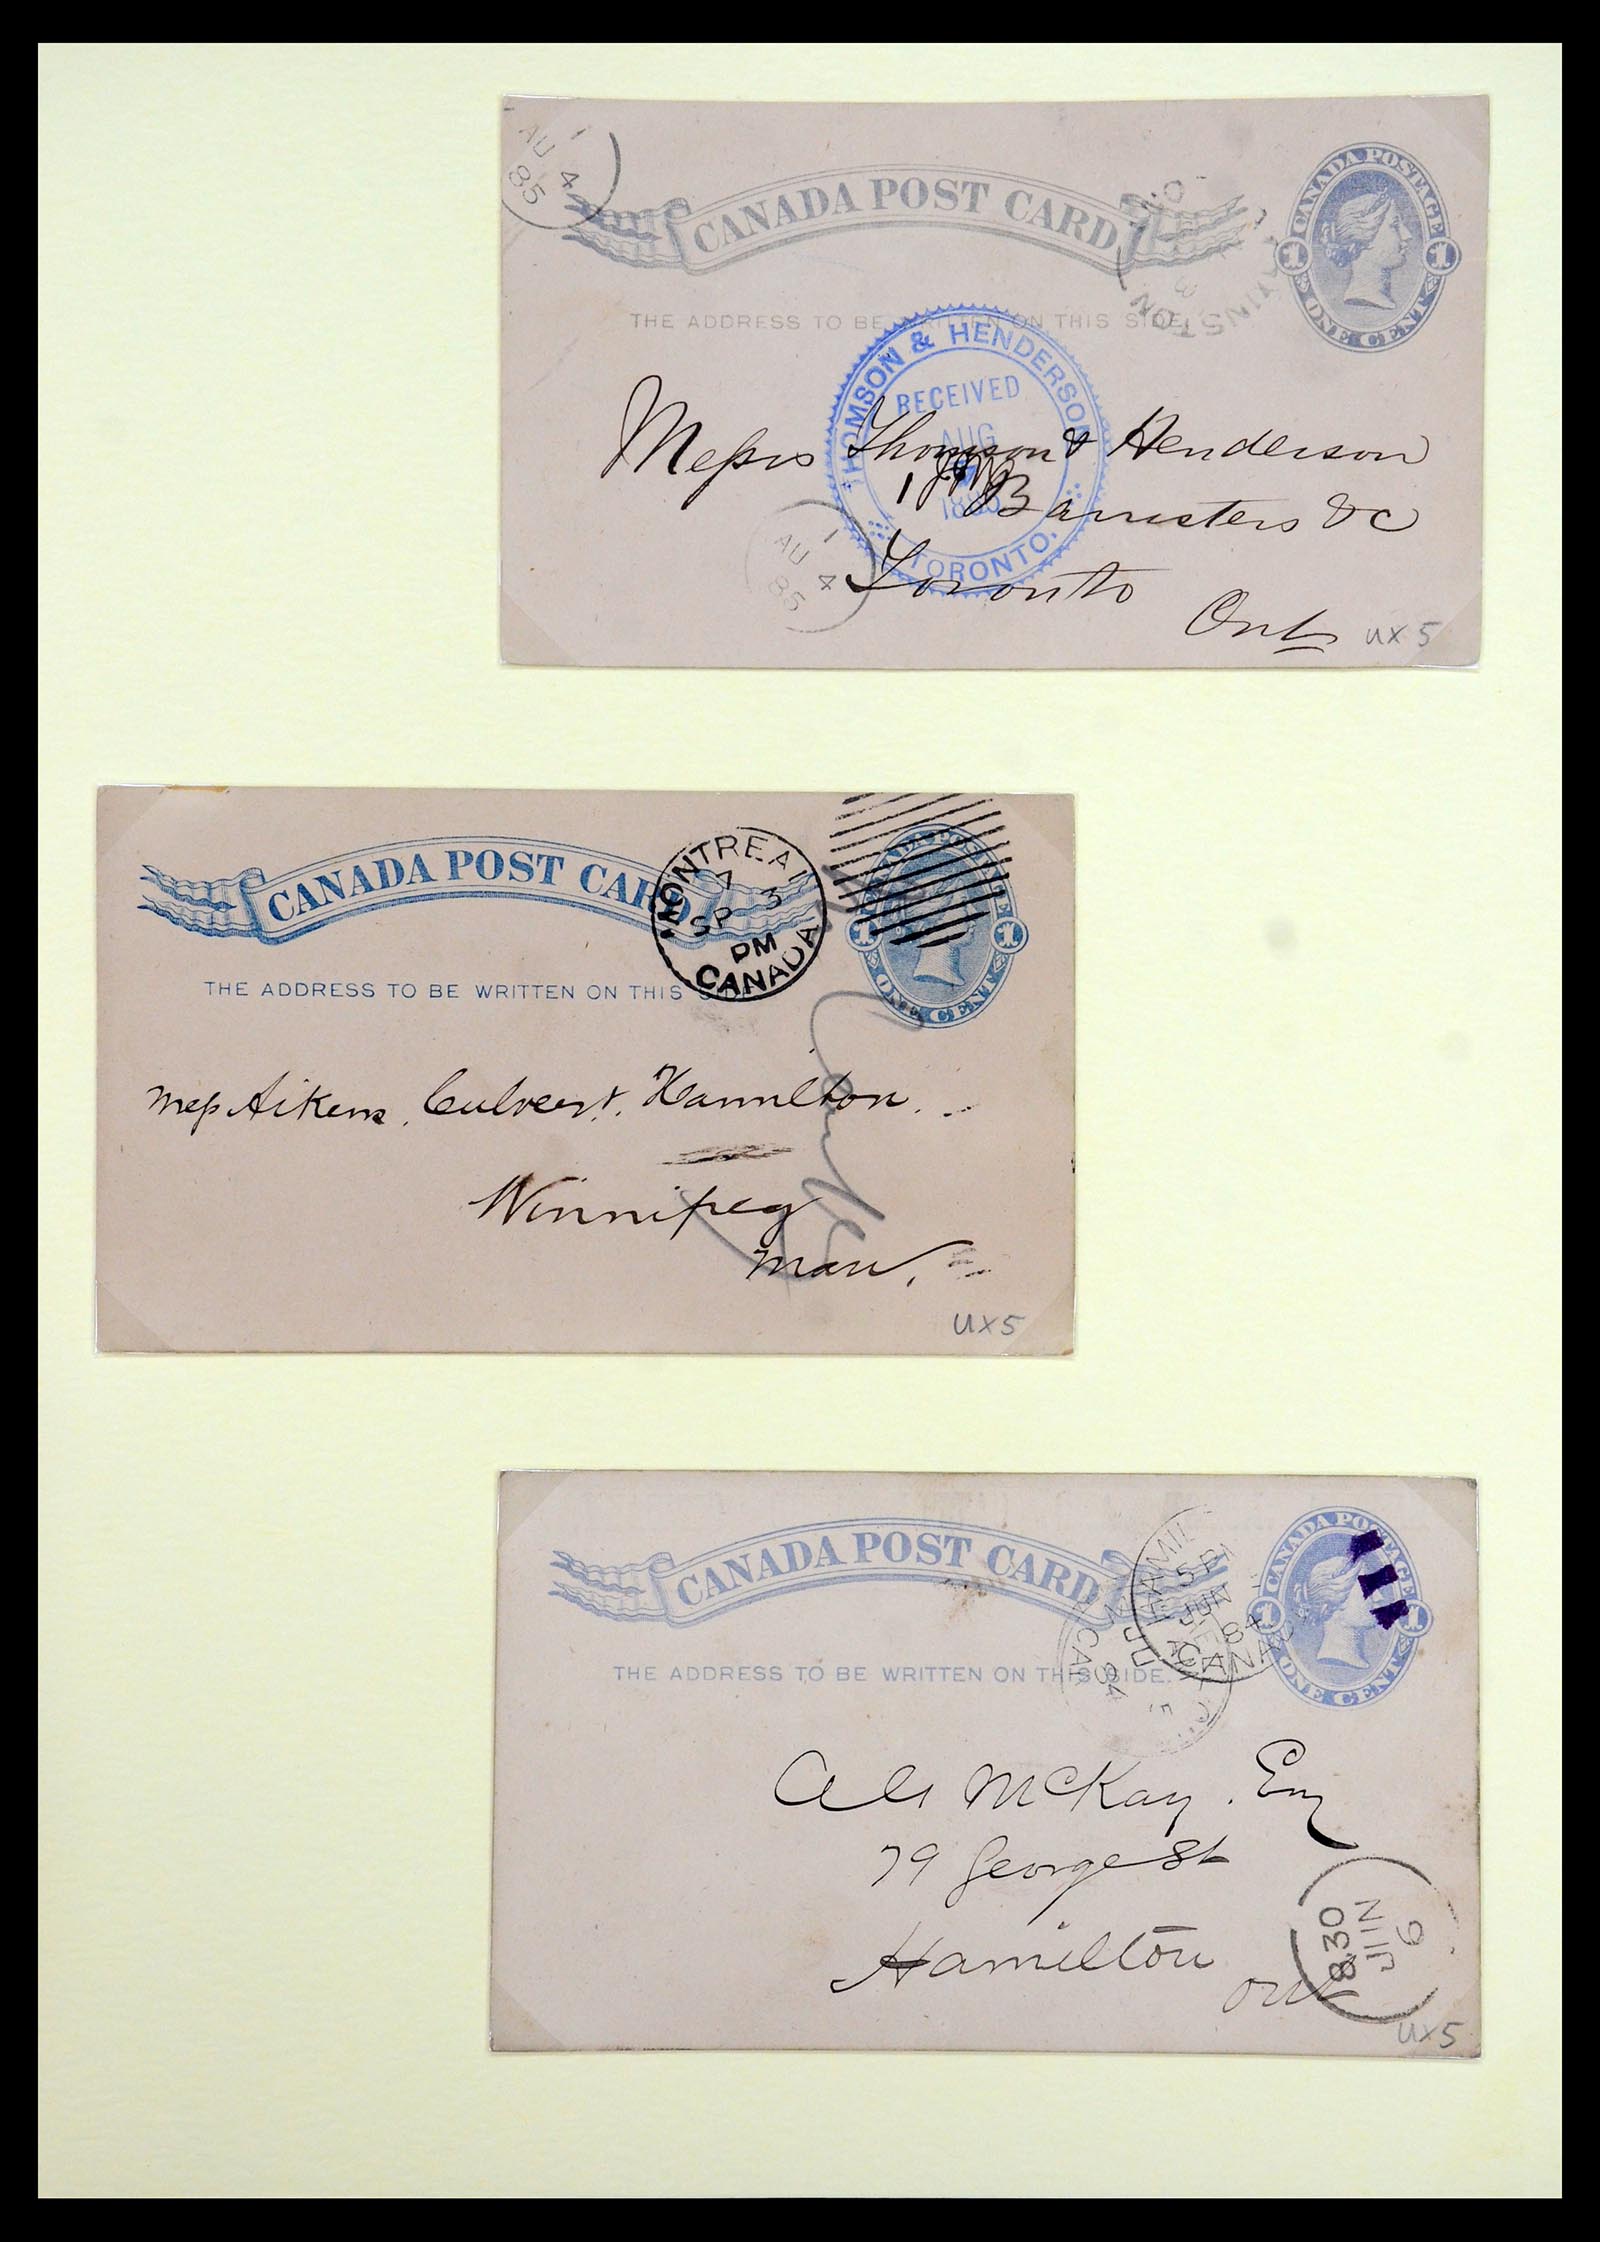 1
AU 4
85
CANADA POST CARD
CANADA POSTAGE
1 1
ONE CENT
THE ADDRESS TO BE WRITTEN ON THIS SIDE
THOMSON & HENDERSON
RECEIVED
AUG
1885
TORONTO.
Messrs Thomson & Henderson
Barristers &c
Toronto
Ont
1
AU 4
85
UX 5
CANADA POST CARD
CANADA POSTAGE
1 1
ONE CENT
MONTREAL
7
SP 3
PM
CANADA
THE ADDRESS TO BE WRITTEN ON THIS
Mess Aikens, Culvert, Hamilton.
Winnipeg
Man.
UX5
CANADA POST CARD
CANADA POSTAGE
1 1
ONE CENT
HAMIL
5 PM
JUN
84
CANADA
THE ADDRESS TO BE WRITTEN ON THIS SIDE.
McKay. Esq
79 George St
Hamilton
Ont
8.30
JUN
6
UX5